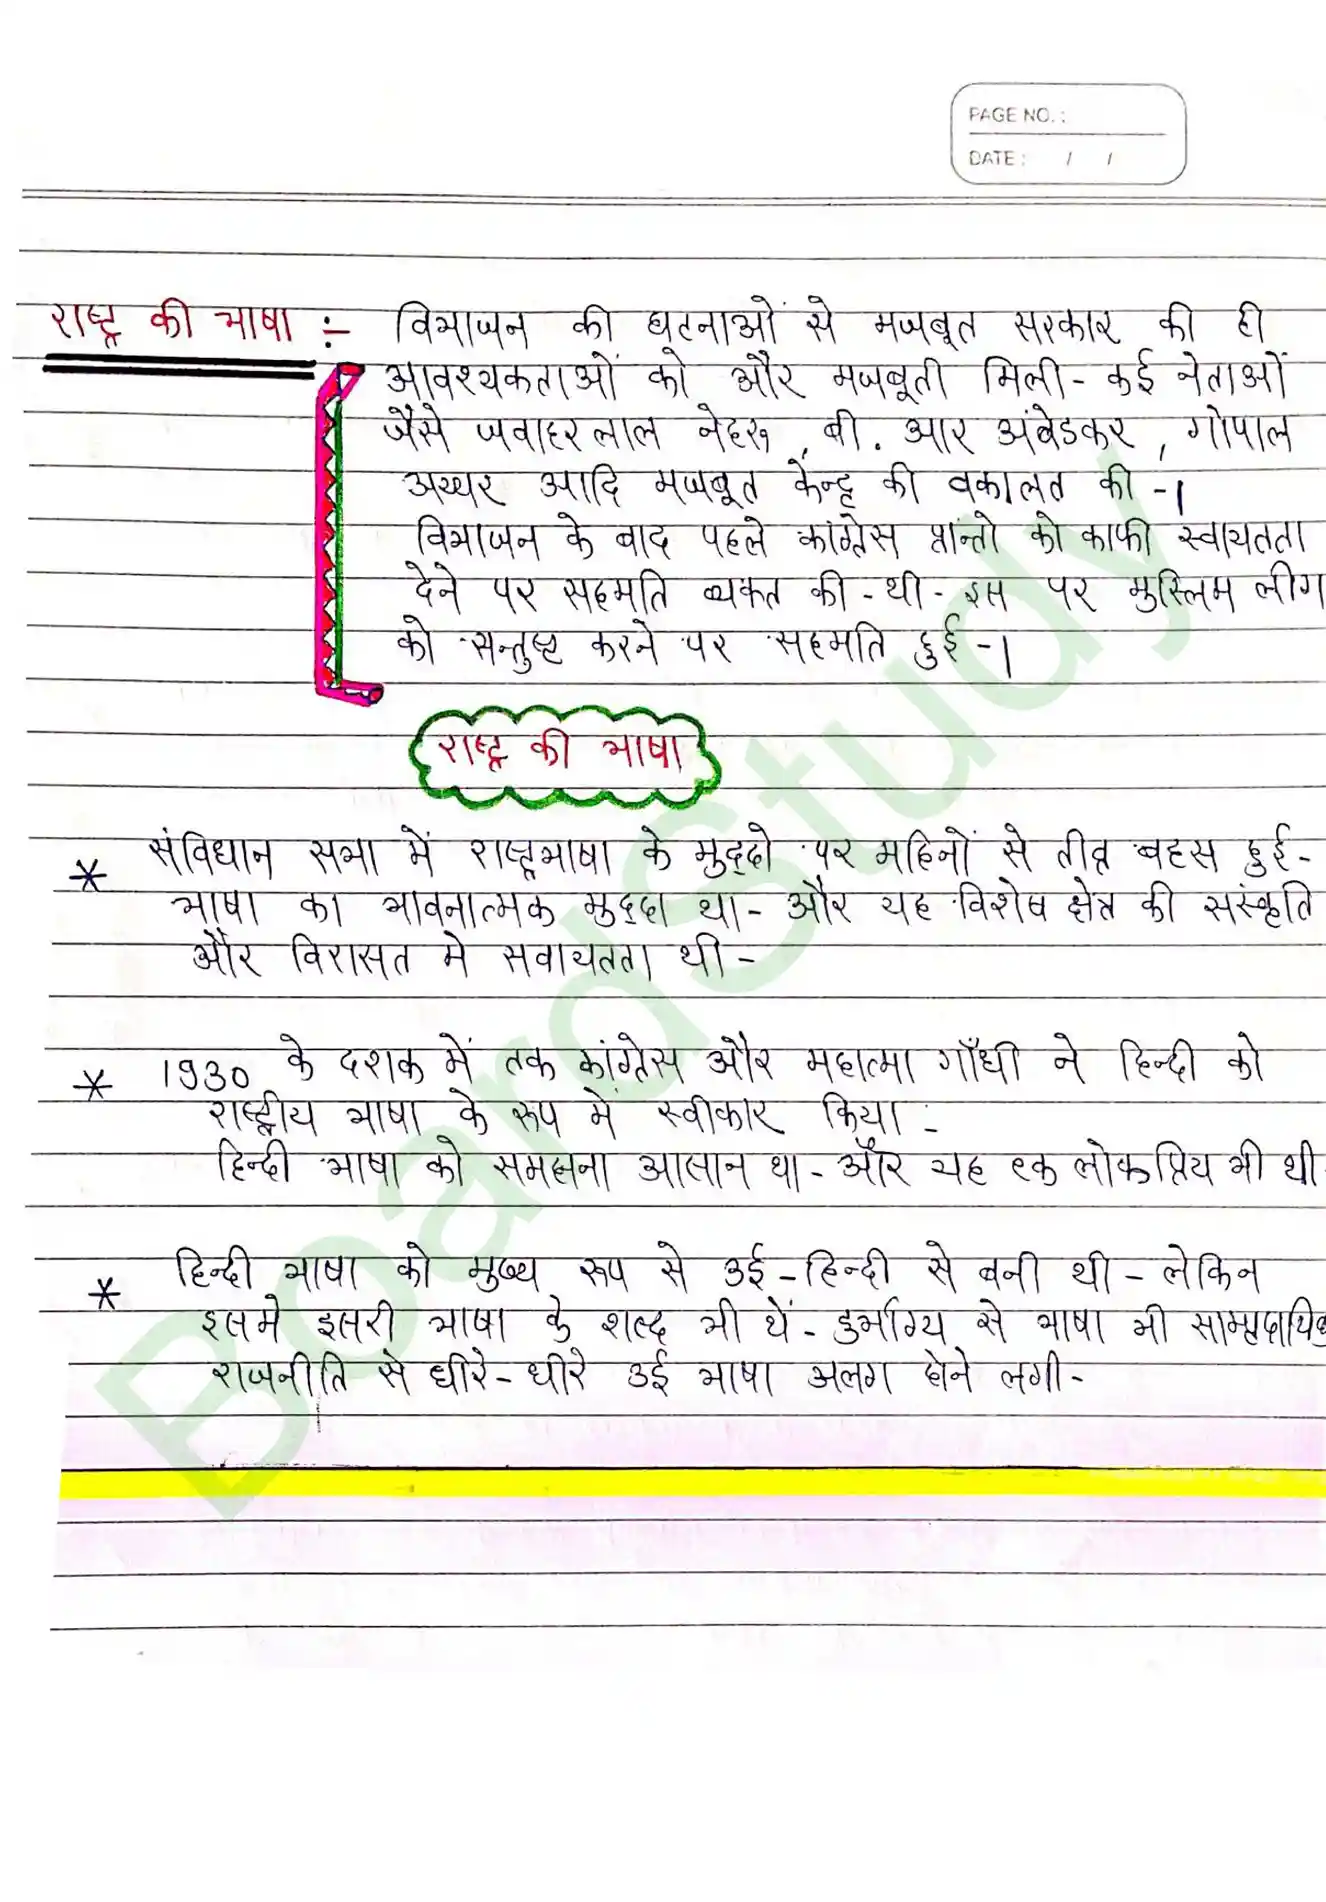 PAGE NO. :
DATE : / /
राष्ट्र की भाषा :- विभाजन की घटनाओं से मजबूत सरकार की ही
आवश्यकताओं को और मजबूती मिली - कई नेताओं
जैसे जवाहर लाल नेहरू , बी . आर अंबेडकर , गोपाल
अय्यर आदि मजबूत केन्द्र की वकालत की -।
विभाजन के बाद पहले कांग्रेस प्रान्तो को काफी स्वायतता
देने पर सहमति व्यक्त की - थी - इस पर मुस्लिम लीग
को सन्तुष्ट करने पर सहमति हुई -।
राष्ट्र की भाषा
* संविधान सभा में राष्ट्रभाषा के मुद्दो पर महिनों से तीव्र बहस हुई -
भाषा का भावनात्मक मुद्दा था - और यह विशेष क्षेत्र की संस्कृति
और विरासत मे सवायतता थी -
* 1930 के दशक में तक कांग्रेस और महात्मा गाँधी ने हिन्दी को
राष्ट्रीय भाषा के रूप में स्वीकार किया -
हिन्दी भाषा को समझना आसान था - और यह एक लोकप्रिय भी थी
* हिन्दी भाषा को मुख्य रूप से उर्दू - हिन्दी से बनी थी - लेकिन
इसमे इसरी भाषा के शब्द भी थें - दुर्भाग्य से भाषा भी साम्प्रदायिक
राजनीति से धीरे - धीरे उर्दू भाषा अलग होने लगी -
BoardStudy